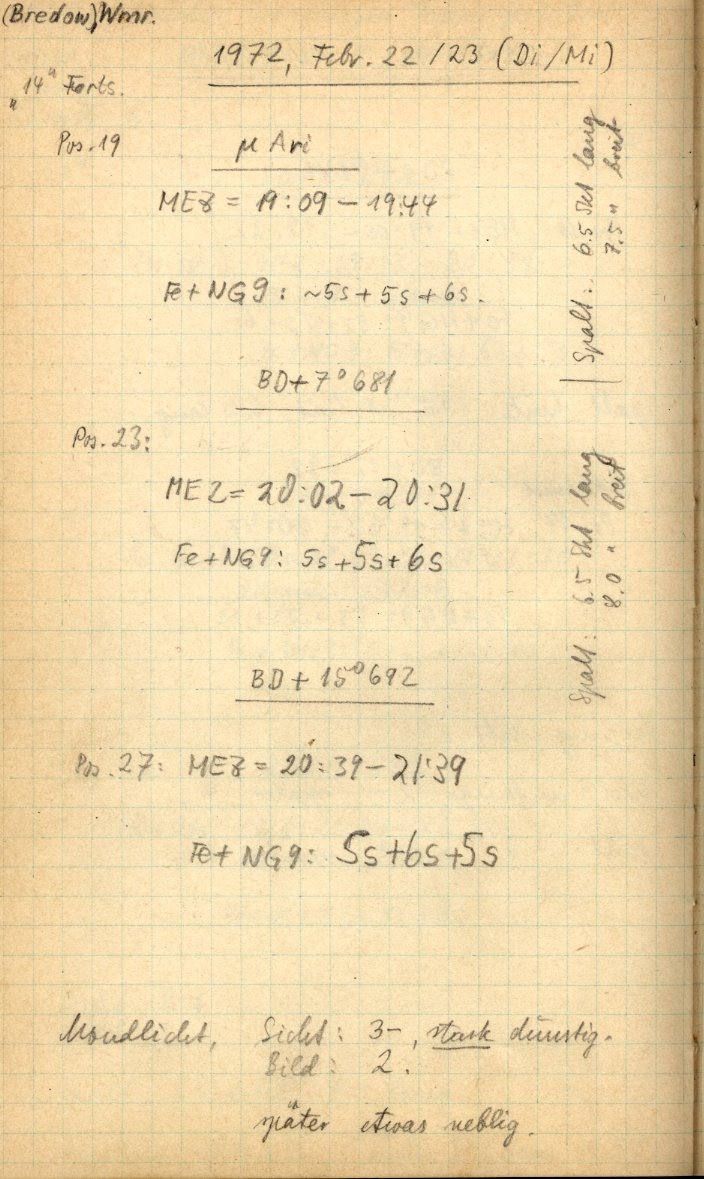 (Bredow), Wmr.
1972, Febr. 22/23 (Di/Mi)
"14" Forts.
Pos. 19 μ Ari
MEZ = 19:09 – 19:44
Fe+NG9: ~5s + 5s + 6s.
Spalt: 6.5 Skt lang
7.5 " breit
BD+7°681
Pos. 23:
MEZ = 20:02 – 20:31
Fe+NG9: 5s + 5s + 6s
Spalt: 6.5 Skt lang
8.0 " breit
BD + 15°692
Pos. 27: MEZ = 20:39 – 21:39
Fe+NG9: 5s + 6s + 5s
Mondlicht, Sicht: 3–, stark dünstig.
Bild: 2.
später etwas neblig.